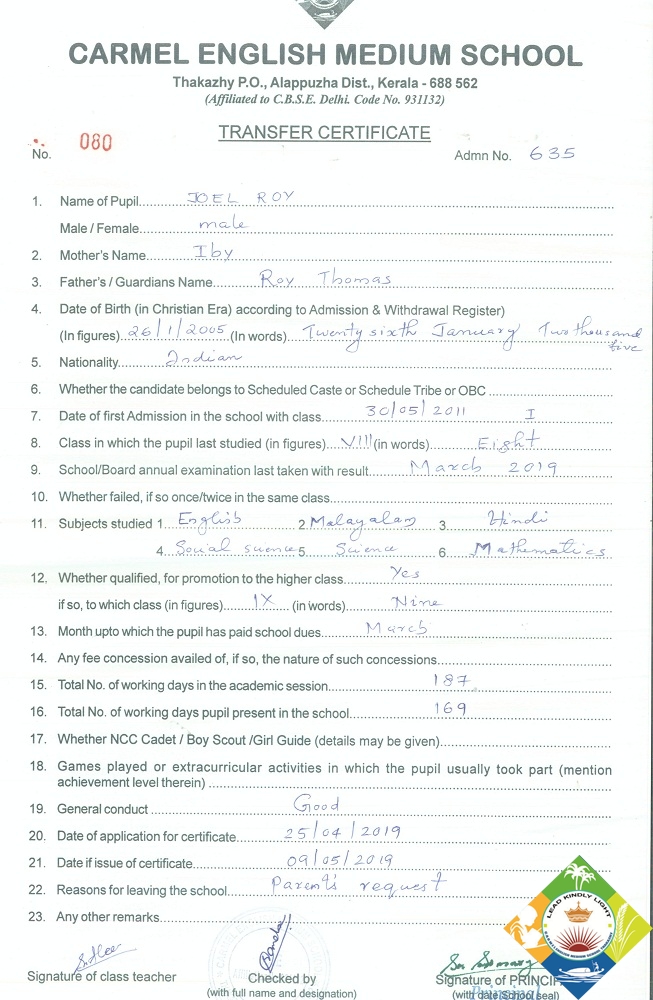 CARMEL ENGLISH MEDIUM SCHOOL
Thakazhy P.O., Alappuzha Dist., Kerala - 688 562
(Affiliated to C.B.S.E. Delhi. Code No. 931132)
TRANSFER CERTIFICATE
No. 080 Admn No. 635
1. Name of Pupil JOEL ROY
Male / Female male
2. Mother's Name Iby
3. Father's / Guardians Name Roy Thomas
4. Date of Birth (in Christian Era) according to Admission & Withdrawal Register)
(In figures) 26/1/2005 (In words) Twenty sixth January Two thousand
five
5. Nationality Indian
6. Whether the candidate belongs to Scheduled Caste or Schedule Tribe or OBC
7. Date of first Admission in the school with class 30/05/2011 I
8. Class in which the pupil last studied (in figures) VIII (in words) Eight
9. School/Board annual examination last taken with result March 2019
10. Whether failed, if so once/twice in the same class
11. Subjects studied 1. English 2. Malayalam 3. Hindi
4. Social science 5 Science 6. Mathematics
12. Whether qualified, for promotion to the higher class Yes
if so, to which class (in figures) IX (in words) Nine
13. Month upto which the pupil has paid school dues March
14. Any fee concession availed of, if so, the nature of such concessions
15. Total No. of working days in the academic session 187
16. Total No. of working days pupil present in the school 169
17. Whether NCC Cadet / Boy Scout /Girl Guide (details may be given)
18. Games played or extracurricular activities in which the pupil usually took part (mention
achievement level therein)
19. General conduct Good
20. Date of application for certificate 25/04/2019
21. Date if issue of certificate 09/05/2019
22. Reasons for leaving the school Parent's request
23. Any other remarks
LEAD KINDLY LIGHT
Signature of class teacher Checked by Signature of PRINCIP
(with full name and designation) (with date school seal)
Principal